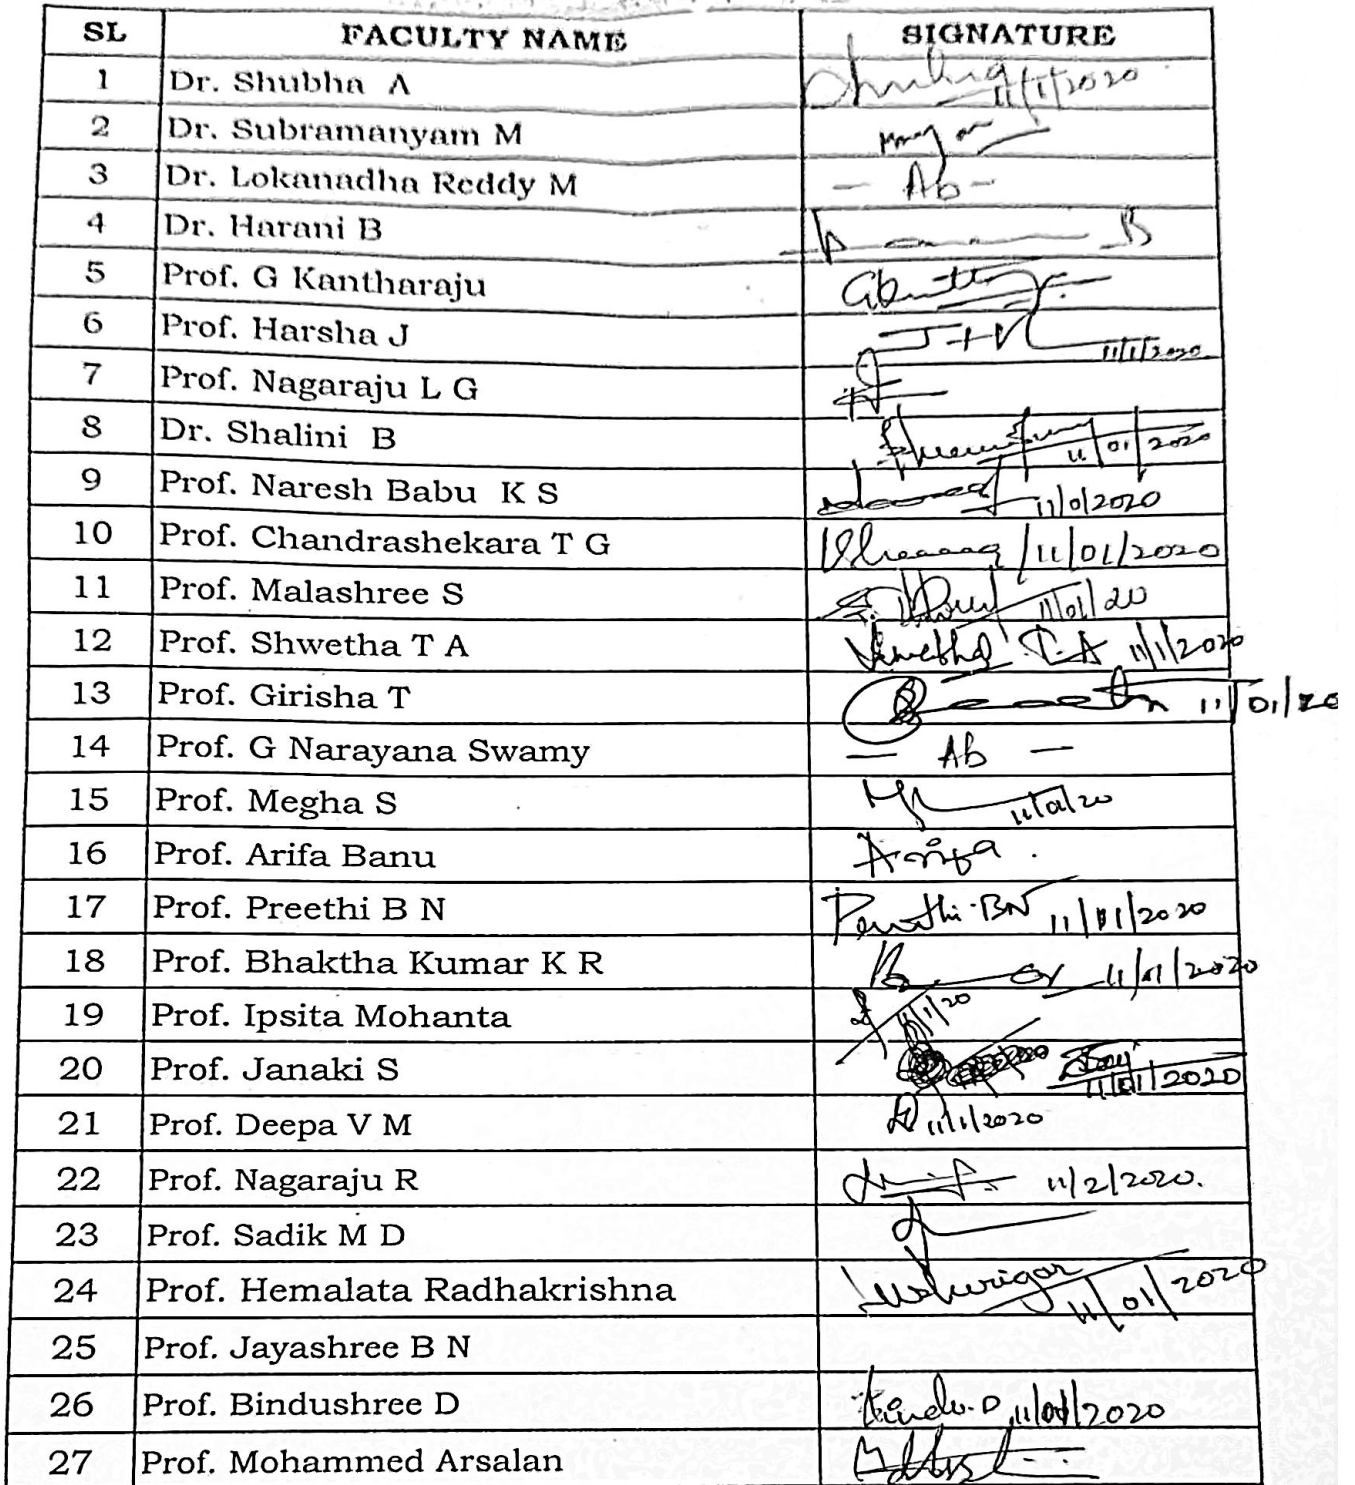 SL FACULTY NAME SIGNATURE
1 Dr. Shubha A 11/1/2020
2 Dr. Subramanyam M
3 Dr. Lokanadha Reddy M - Ab -
4 Dr. Harani B
5 Prof. G Kantharaju
6 Prof. Harsha J 11/1/2020
7 Prof. Nagaraju L G
8 Dr. Shalini B 11/01/2020
9 Prof. Naresh Babu K S 11/0/2020
10 Prof. Chandrashekara T G 11/01/2020
11 Prof. Malashree S 11/01/20
12 Prof. Shwetha T A Shwetha T.A 11/1/2020
13 Prof. Girisha T 11/01/20
14 Prof. G Narayana Swamy - Ab -
15 Prof. Megha S 11/01/20
16 Prof. Arifa Banu Arifa.
17 Prof. Preethi B N Preethi.BN 11/01/2020
18 Prof. Bhaktha Kumar K R 11/01/2020
19 Prof. Ipsita Mohanta 11/1/20
20 Prof. Janaki S 11/01/2020
21 Prof. Deepa V M 11/1/2020
22 Prof. Nagaraju R 11/2/2020.
23 Prof. Sadik M D
24 Prof. Hemalata Radhakrishna 11/01/2020
25 Prof. Jayashree B N
26 Prof. Bindushree D Bindu.D 11/01/2020
27 Prof. Mohammed Arsalan